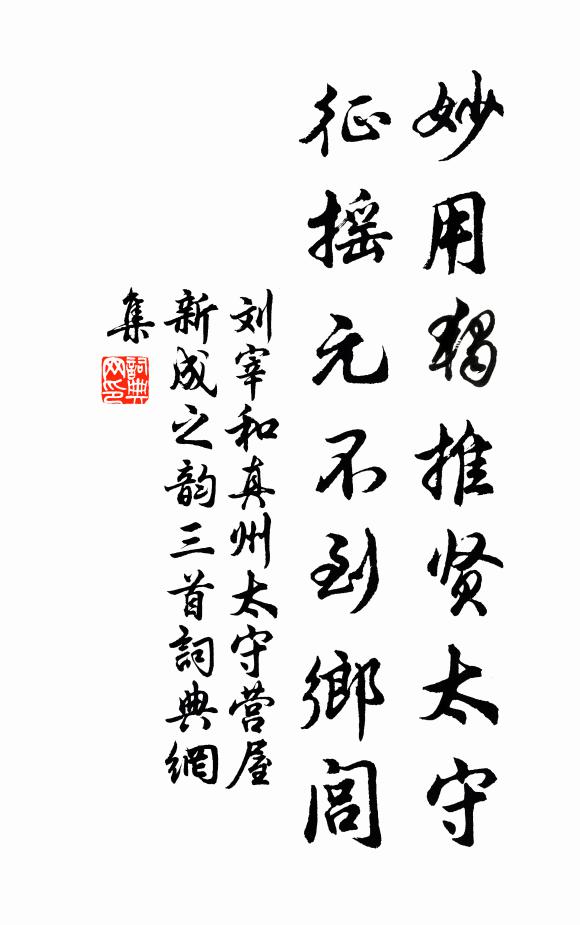 妙用独推贤太守
征摇元不到鄉闾
刘宰和真州太守营屋
新成之韵三首詞典網
集
詞典
网印